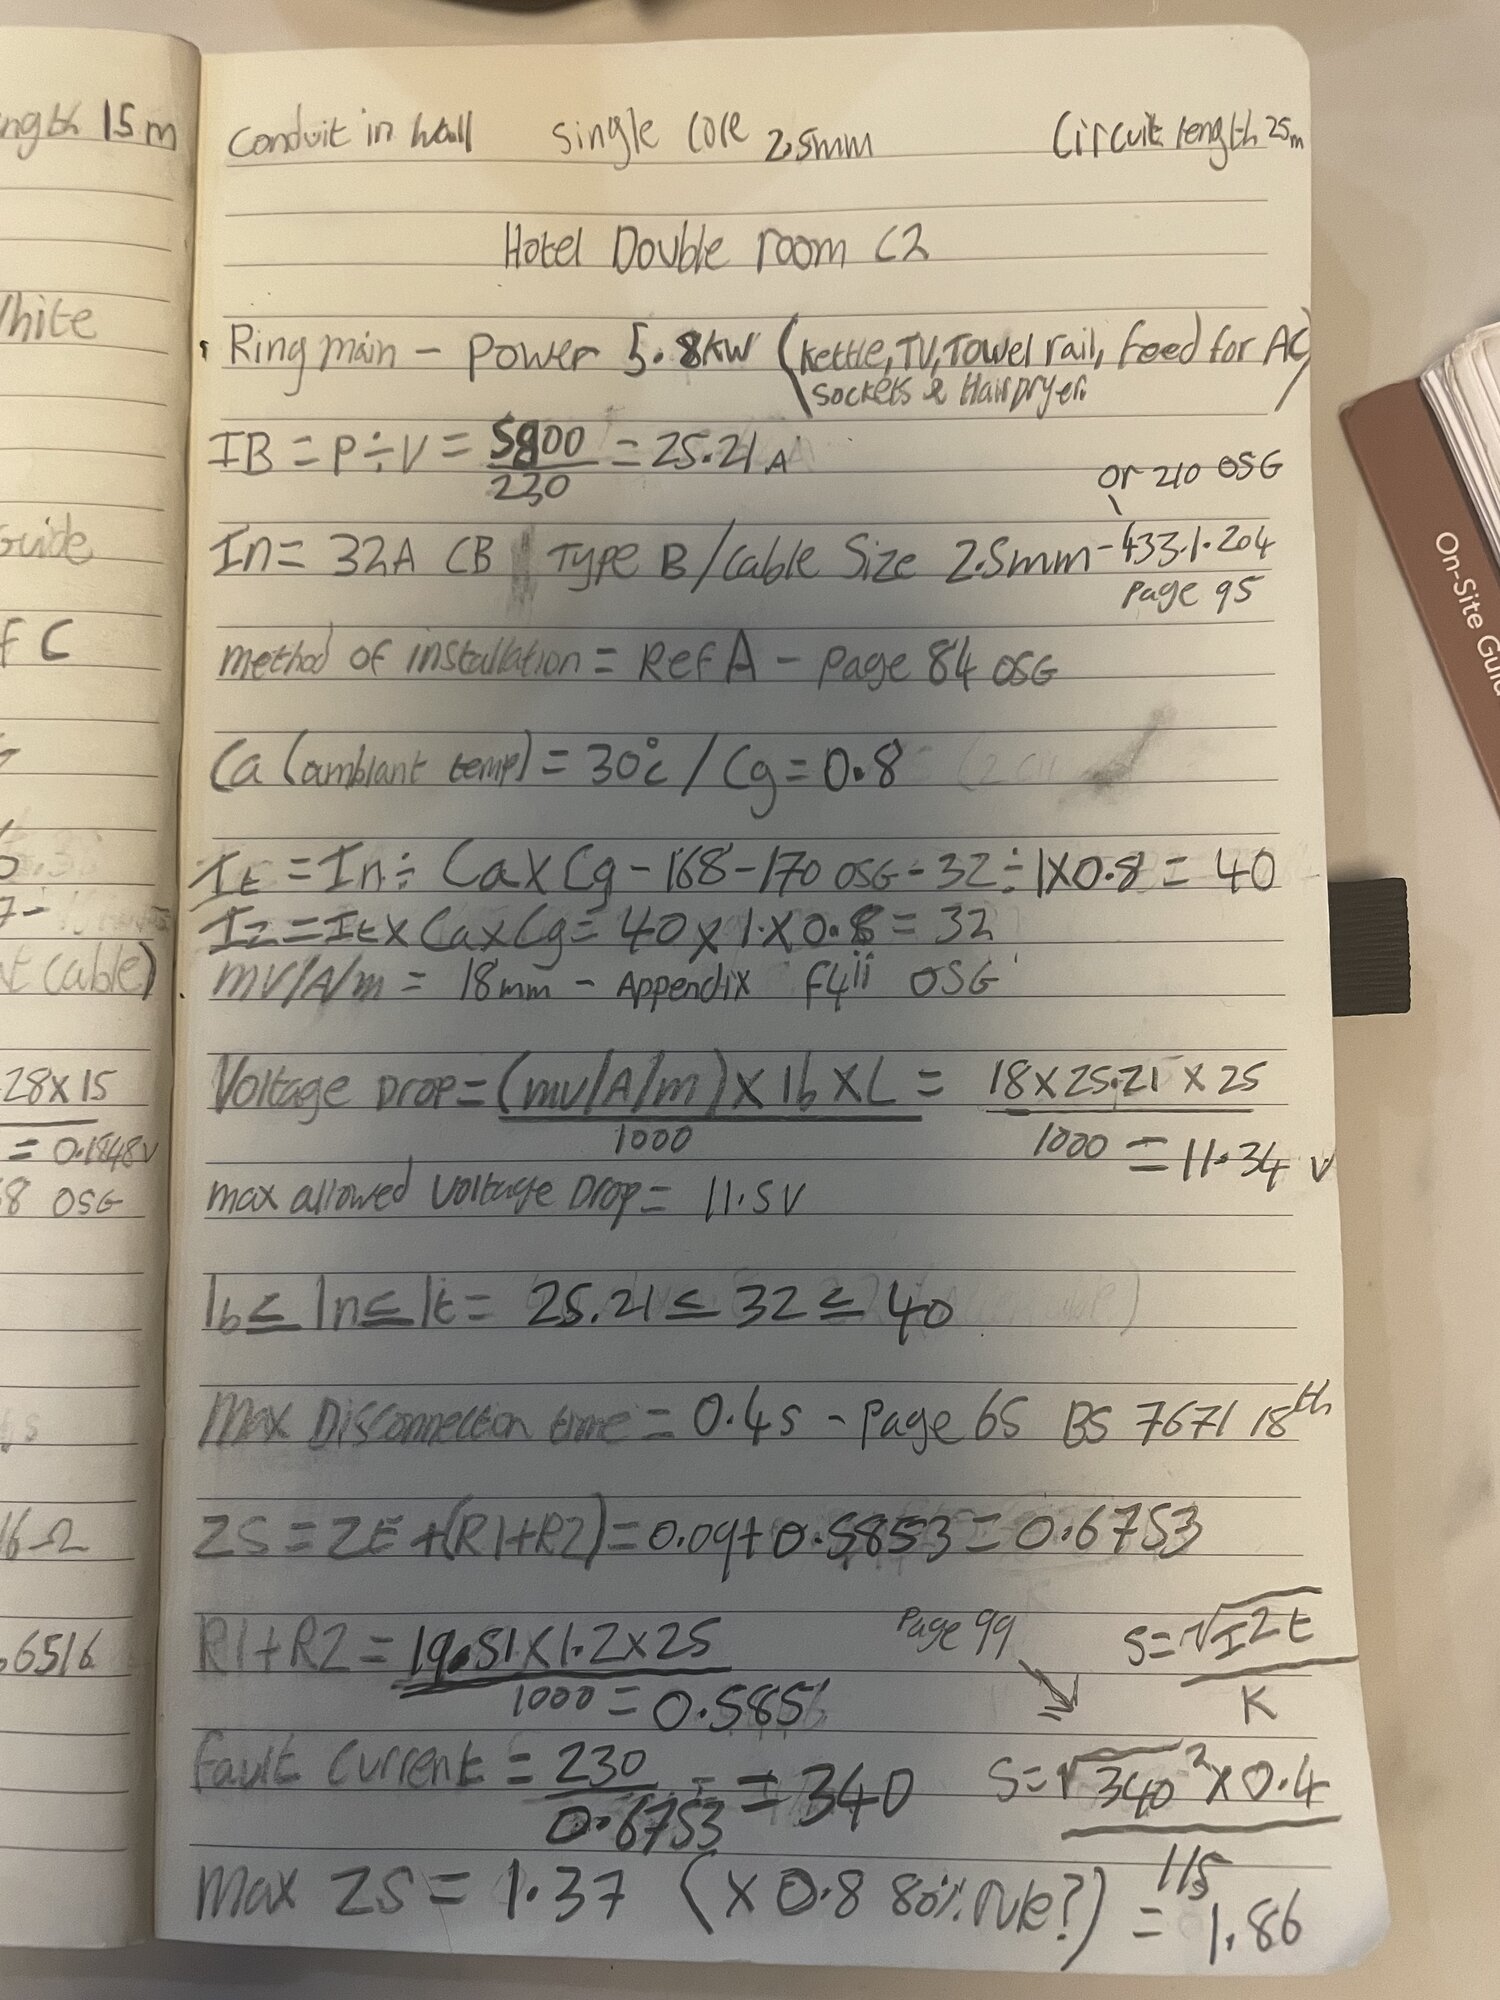 ngth 15m
Conduit in wall single core 2.5mm Circuit length 25m
Hotel Double room C2
White
Ring main - Power 5.8kW (Kettle, TV, Towel rail, feed for AC
sockets & Hairdryer)
IB = P÷V = 5800 / 230 = 25.21 A
or 210 OSG
Guide
In = 32A CB Type B/Cable Size 2.5mm - 433.1.204
Page 95
f C
method of installation = Ref A - Page 84 OSG
Ca (ambiant temp) = 30°c / Cg = 0.8
It = In ÷ Ca x Cg - 168-170 OSG - 32 ÷ 1x0.8 = 40
Iz = It x Ca x Cg = 40 x 1 x 0.8 = 32
t Cable)
mV/A/m = 18mm - Appendix F4ii OSG
28 x 15
Voltage Drop = (mv/A/m) x Ib x L / 1000 = 18 x 25.21 x 25 / 1000 = 11.34 v
= 0.1848v
8 OSG
max allowed Voltage Drop = 11.5V
Ib ≤ In ≤ It = 25.21 ≤ 32 ≤ 40
Max Disconnection time = 0.4s - Page 65 BS 7671 18th
16Ω
ZS = ZE + (R1+R2) = 0.09 + 0.5853 = 0.6753
.6516
R1+R2 = 19.51 x 1.2 x 25 / 1000 = 0.585
Page 99
S = √I2t / K
Fault Current = 230 / 0.6753 = 340
S = √340² x 0.4 / 115 = 1.86
Max ZS = 1.37 (x 0.8 80% rule?)
On-Site Guid